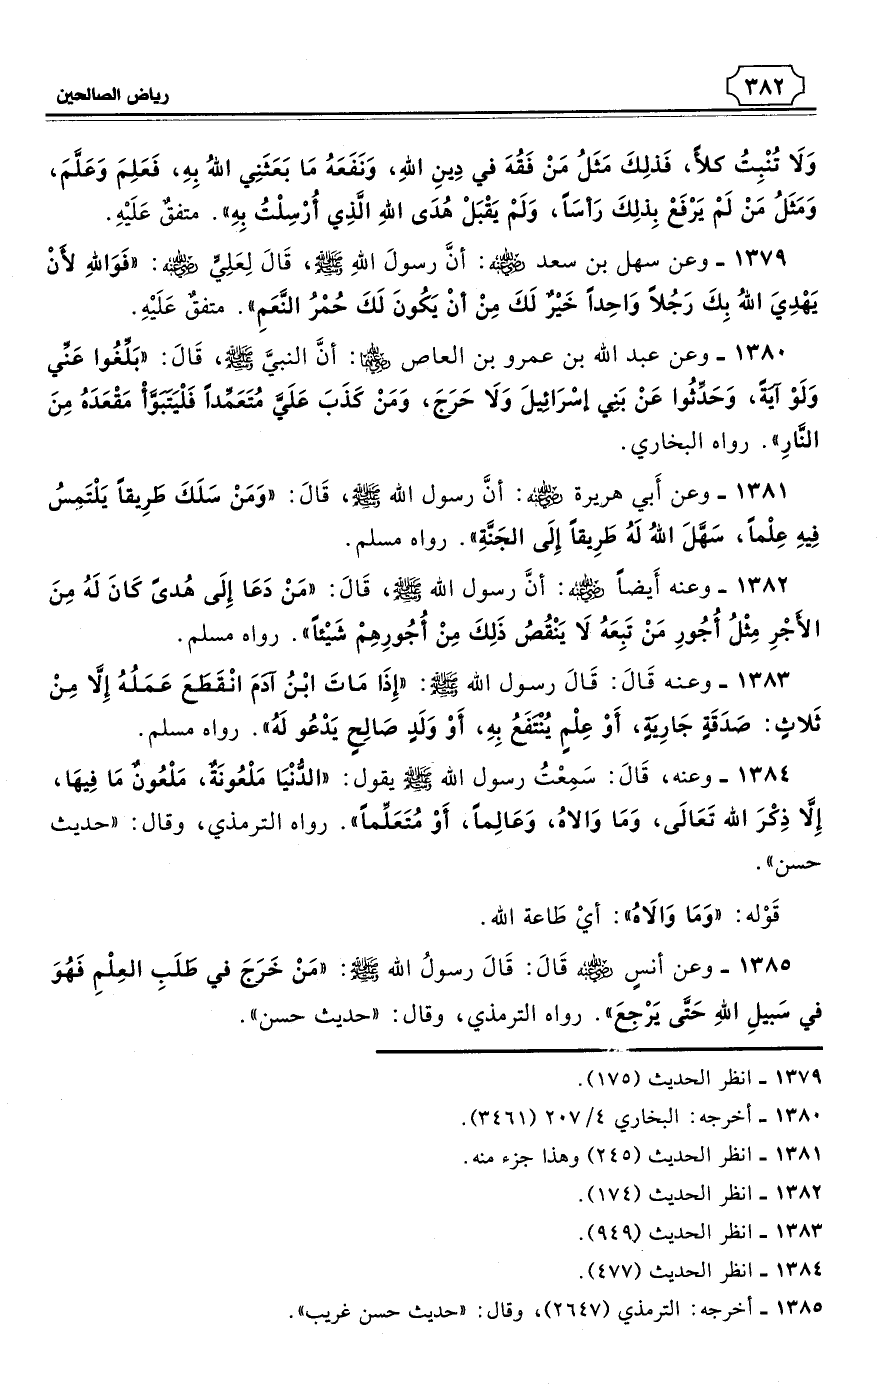 ٣٨٢
رياض الصالحين
وَلَا تُنْبِتُ كلأً، فَذلِكَ مَثَلُ مَنْ فَقُهَ في دِينِ اللهِ، وَنَفَعَهُ مَا بَعَثَنِي اللهُ بِهِ، فَعَلِمَ وَعَلَّمَ،
وَمَثَلُ مَنْ لَمْ يَرْفَعْ بِذلِكَ رَأسَاً، وَلَمْ يَقْبَلْ هُدَى اللهِ الَّذِي أُرْسِلْتُ بِهِ». متفقٌ عَلَيْهِ.
١٣٧٩ ـ وعن سهل بن سعد ﵁: أنَّ رسولَ اللهِ ﷺ، قَالَ لِعَلِيٍّ ﵁: «فَوَاللهِ لأَنْ
يَهْدِيَ اللهُ بِكَ رَجُلاً وَاحِداً خَيْرٌ لَكَ مِنْ أَنْ يَكُونَ لَكَ حُمْرُ النَّعَمِ». متفقٌ عَلَيْهِ.
١٣٨٠ ـ وعن عبد الله بن عمرو بن العاص ﵄: أنَّ النبيَّ ﷺ، قَالَ: «بَلِّغُوا عَنِّي
وَلَوْ آيَةً، وَحَدِّثُوا عَنْ بَنِي إسْرَائِيلَ وَلَا حَرَجَ، وَمَنْ كَذَبَ عَلَيَّ مُتَعَمِّداً فَلْيَتَبَوَّأْ مَقْعَدَهُ مِنَ
النَّارِ». رواه البخاري.
١٣٨١ ـ وعن أَبي هريرة ﵁: أنَّ رسول الله ﷺ، قَالَ: «وَمَنْ سَلَكَ طَرِيقاً يَلْتَمِسُ
فِيهِ عِلْماً، سَهَّلَ اللهُ لَهُ طَرِيقاً إِلَى الجَنَّةِ». رواه مسلم.
١٣٨٢ ـ وعنه أَيضاً ﵁: أنَّ رسول الله ﷺ، قَالَ: «مَنْ دَعَا إِلَى هُدىً كَانَ لَهُ مِنَ
الأَجْرِ مِثْلُ أُجُورِ مَنْ تَبِعَهُ لَا يَنْقُصُ ذَلِكَ مِنْ أُجُورِهِمْ شَيْئاً». رواه مسلم.
١٣٨٣ ـ وعنه قَالَ: قَالَ رسول الله ﷺ: «إِذَا مَاتَ ابْنُ آدَمَ انْقَطَعَ عَمَلُهُ إِلَّا مِنْ
ثَلاثٍ: صَدَقَةٍ جَارِيَةٍ، أَوْ عِلْمٍ يُنْتَفَعُ بِهِ، أَوْ وَلَدٍ صَالِحٍ يَدْعُو لَهُ». رواه مسلم.
١٣٨٤ ـ وعنه، قَالَ: سَمِعْتُ رسول الله ﷺ يقول: «الدُّنْيَا مَلْعُونَةٌ، مَلْعُونٌ مَا فِيهَا،
إِلَّا ذِكْرَ الله تَعَالَى، وَمَا وَالاهُ، وَعَالِماً، أَوْ مُتَعَلِّماً». رواه الترمذي، وقال: «حديث
حسن».
قَوْله: «وَمَا وَالَاهُ»: أيْ طَاعة الله.
١٣٨٥ ـ وعن أنسٍ ﵁ قَالَ: قَالَ رسولُ الله ﷺ: «مَنْ خَرَجَ في طَلَبِ العِلْمِ فَهُوَ
في سَبيلِ اللهِ حَتَّى يَرْجِعَ». رواه الترمذي، وقال: «حديث حسن».
١٣٧٩ ـ انظر الحديث (١٧٥).
١٣٨٠ ـ أخرجه: البخاري ٤/ ٢٠٧ (٣٤٦١).
١٣٨١ ـ انظر الحديث (٢٤٥) وهذا جزء منه.
١٣٨٢ ـ انظر الحديث (١٧٤).
١٣٨٣ ـ انظر الحديث (٩٤٩).
١٣٨٤ ـ انظر الحديث (٤٧٧).
١٣٨٥ ـ أخرجه: الترمذي (٢٦٤٧)، وقال: «حديث حسن غريب».